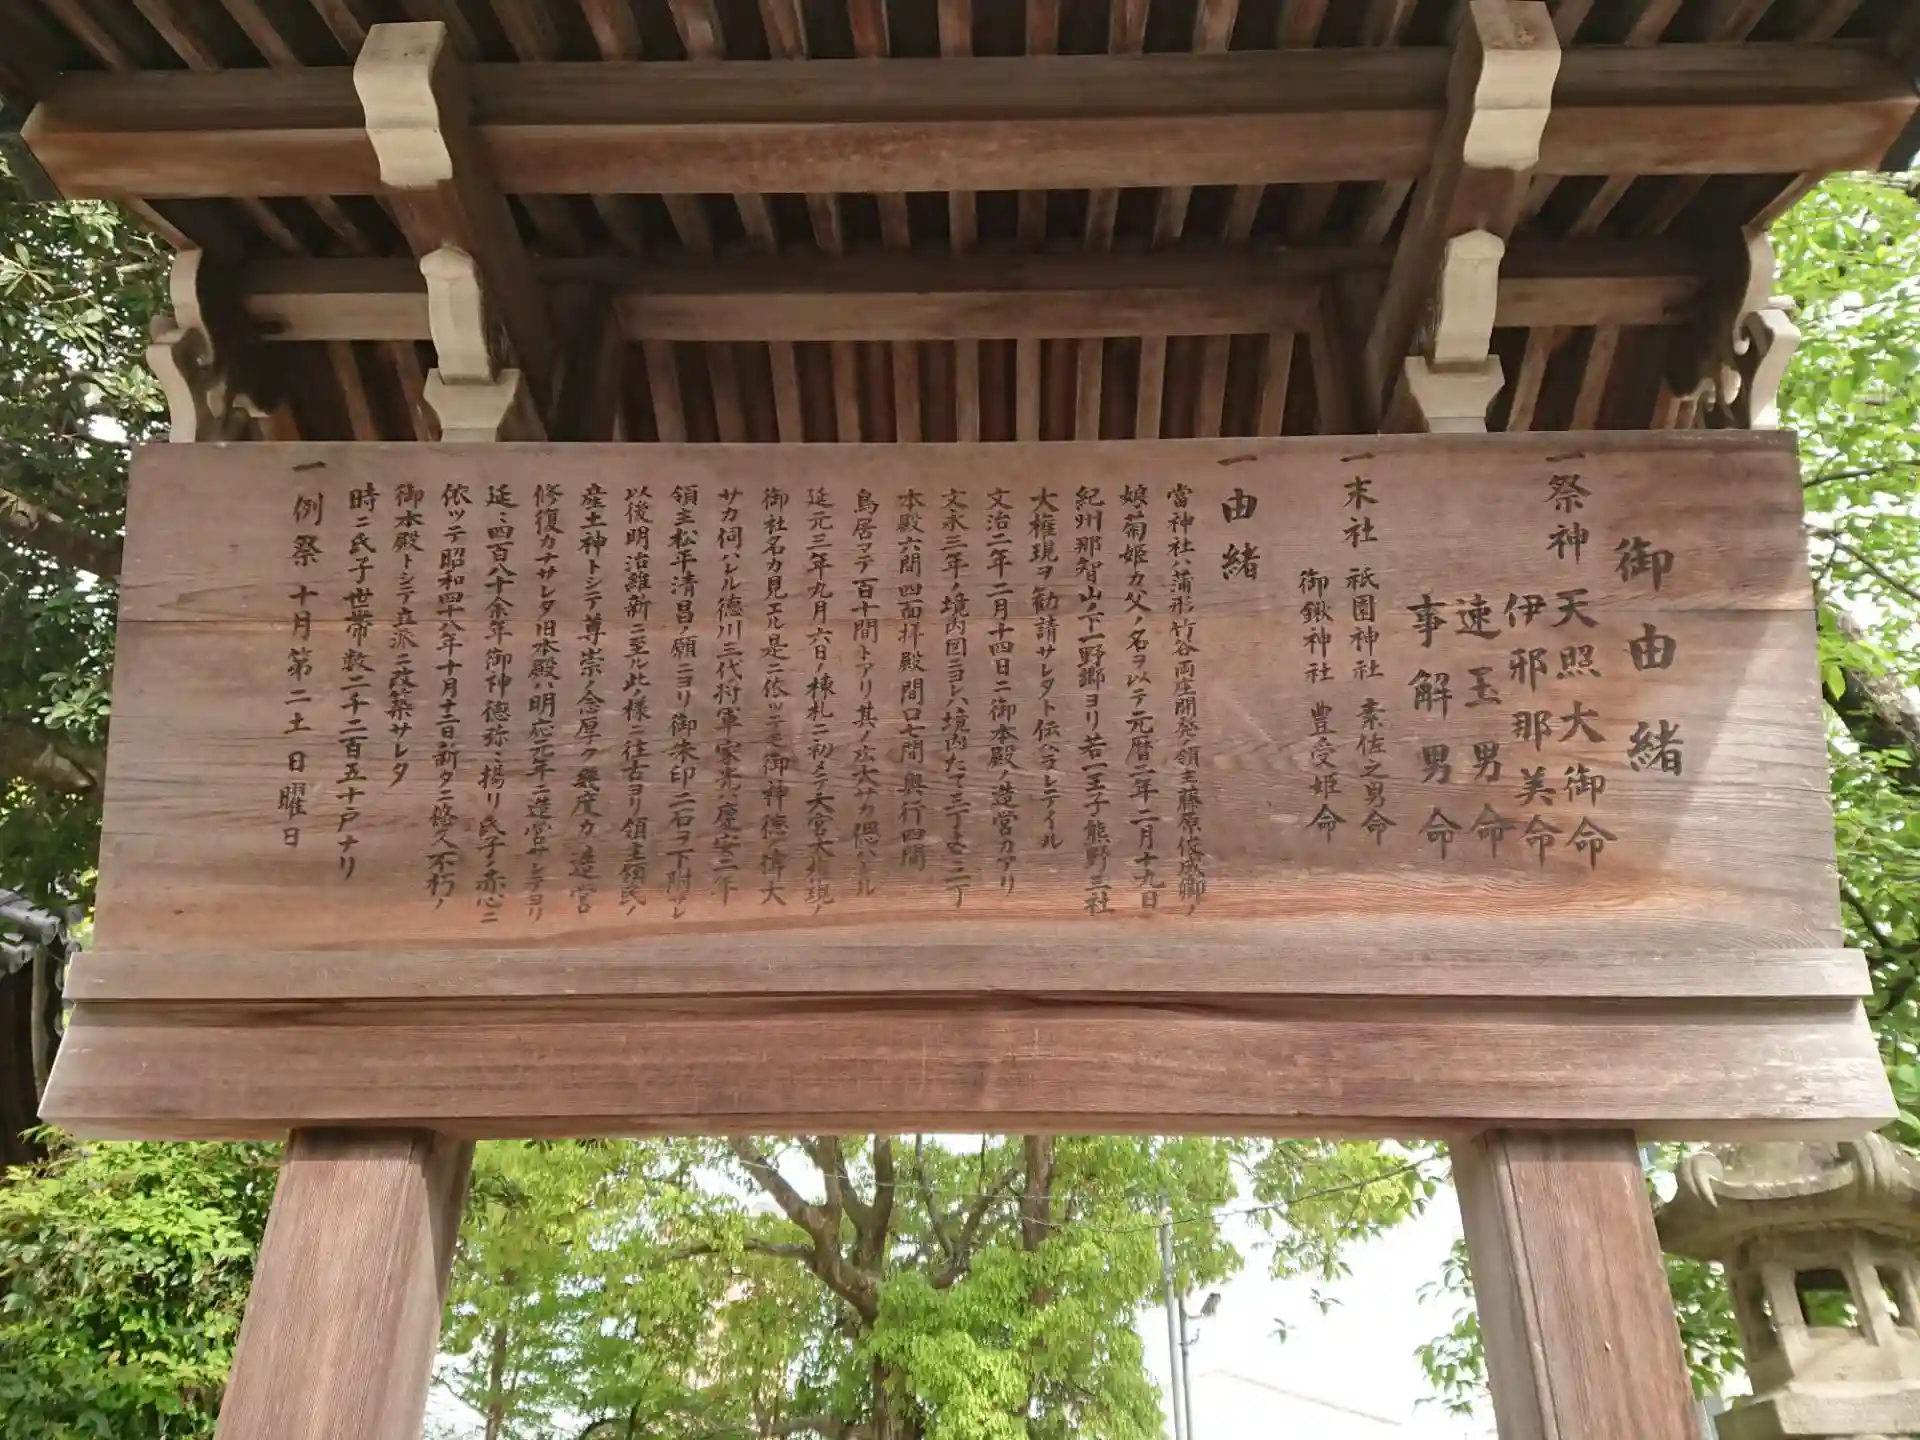 御由緒
一祭神 天照大御命
伊邪那美命
速玉男命
事解男命
一末社 祇園神社 素佐之男命
御鍬神社 豊受姫命
一由緒
當神社ハ蒲形竹谷両庄開発ノ領主藤原俊成卿ノ
娘菊姫カ父ノ名ヲ以テ元暦二年二月十九日
紀州那智山ノ下一野郷ヨリ若一王子熊野三社
大権現ヲ勧請サレタト伝ヘラレテイル
文治二年二月十四日ニ御本殿ノ造営カアリ
文永三年ノ境内図ニヨレハ境内たて三丁よこ二丁
本殿六間四面拝殿間口七間奥行四間
鳥居マテ百十間トアリ其ノ広大サカ偲ハレル
延元三年九月六日ノ棟札ニ初メテ大宮大権現ノ
御社名カ見エル是ニ依ッテモ御神徳ノ偉大
サカ伺ハレル徳川三代将軍家光ハ慶安二年
領主松平清昌ノ願ニヨリ御朱印二石ヲ下附サレ
以後明治維新ニ至ル此ノ様ニ往古ヨリ領主領民ノ
産土神トシテ尊崇ノ念厚ク幾度カノ造営
修復カナサレタ旧本殿ハ明応元年ニ造営サレテヨリ
延々四百八十余年御神徳弥々揚リ氏子ノ赤心ニ
依ッテ昭和四十八年十月十二日新タニ悠久不朽ノ
御本殿トシテ立派ニ改築サレタ
時ニ氏子世帯数二千二百五十戸ナリ
一例祭 十月第二土日曜日